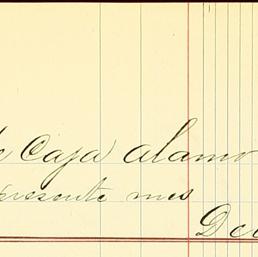 Caja Alamo
presente mes